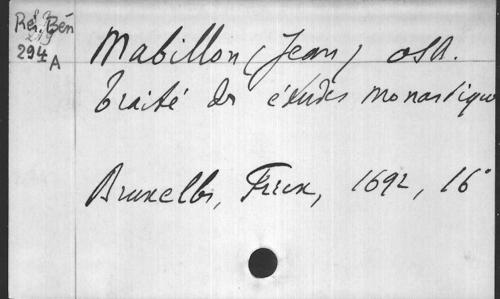 Rel. Bén
294 A
Mabillon (Jean) OSB.
Traité des études monastique
Bruxelles, Fricx, 1692, 16°